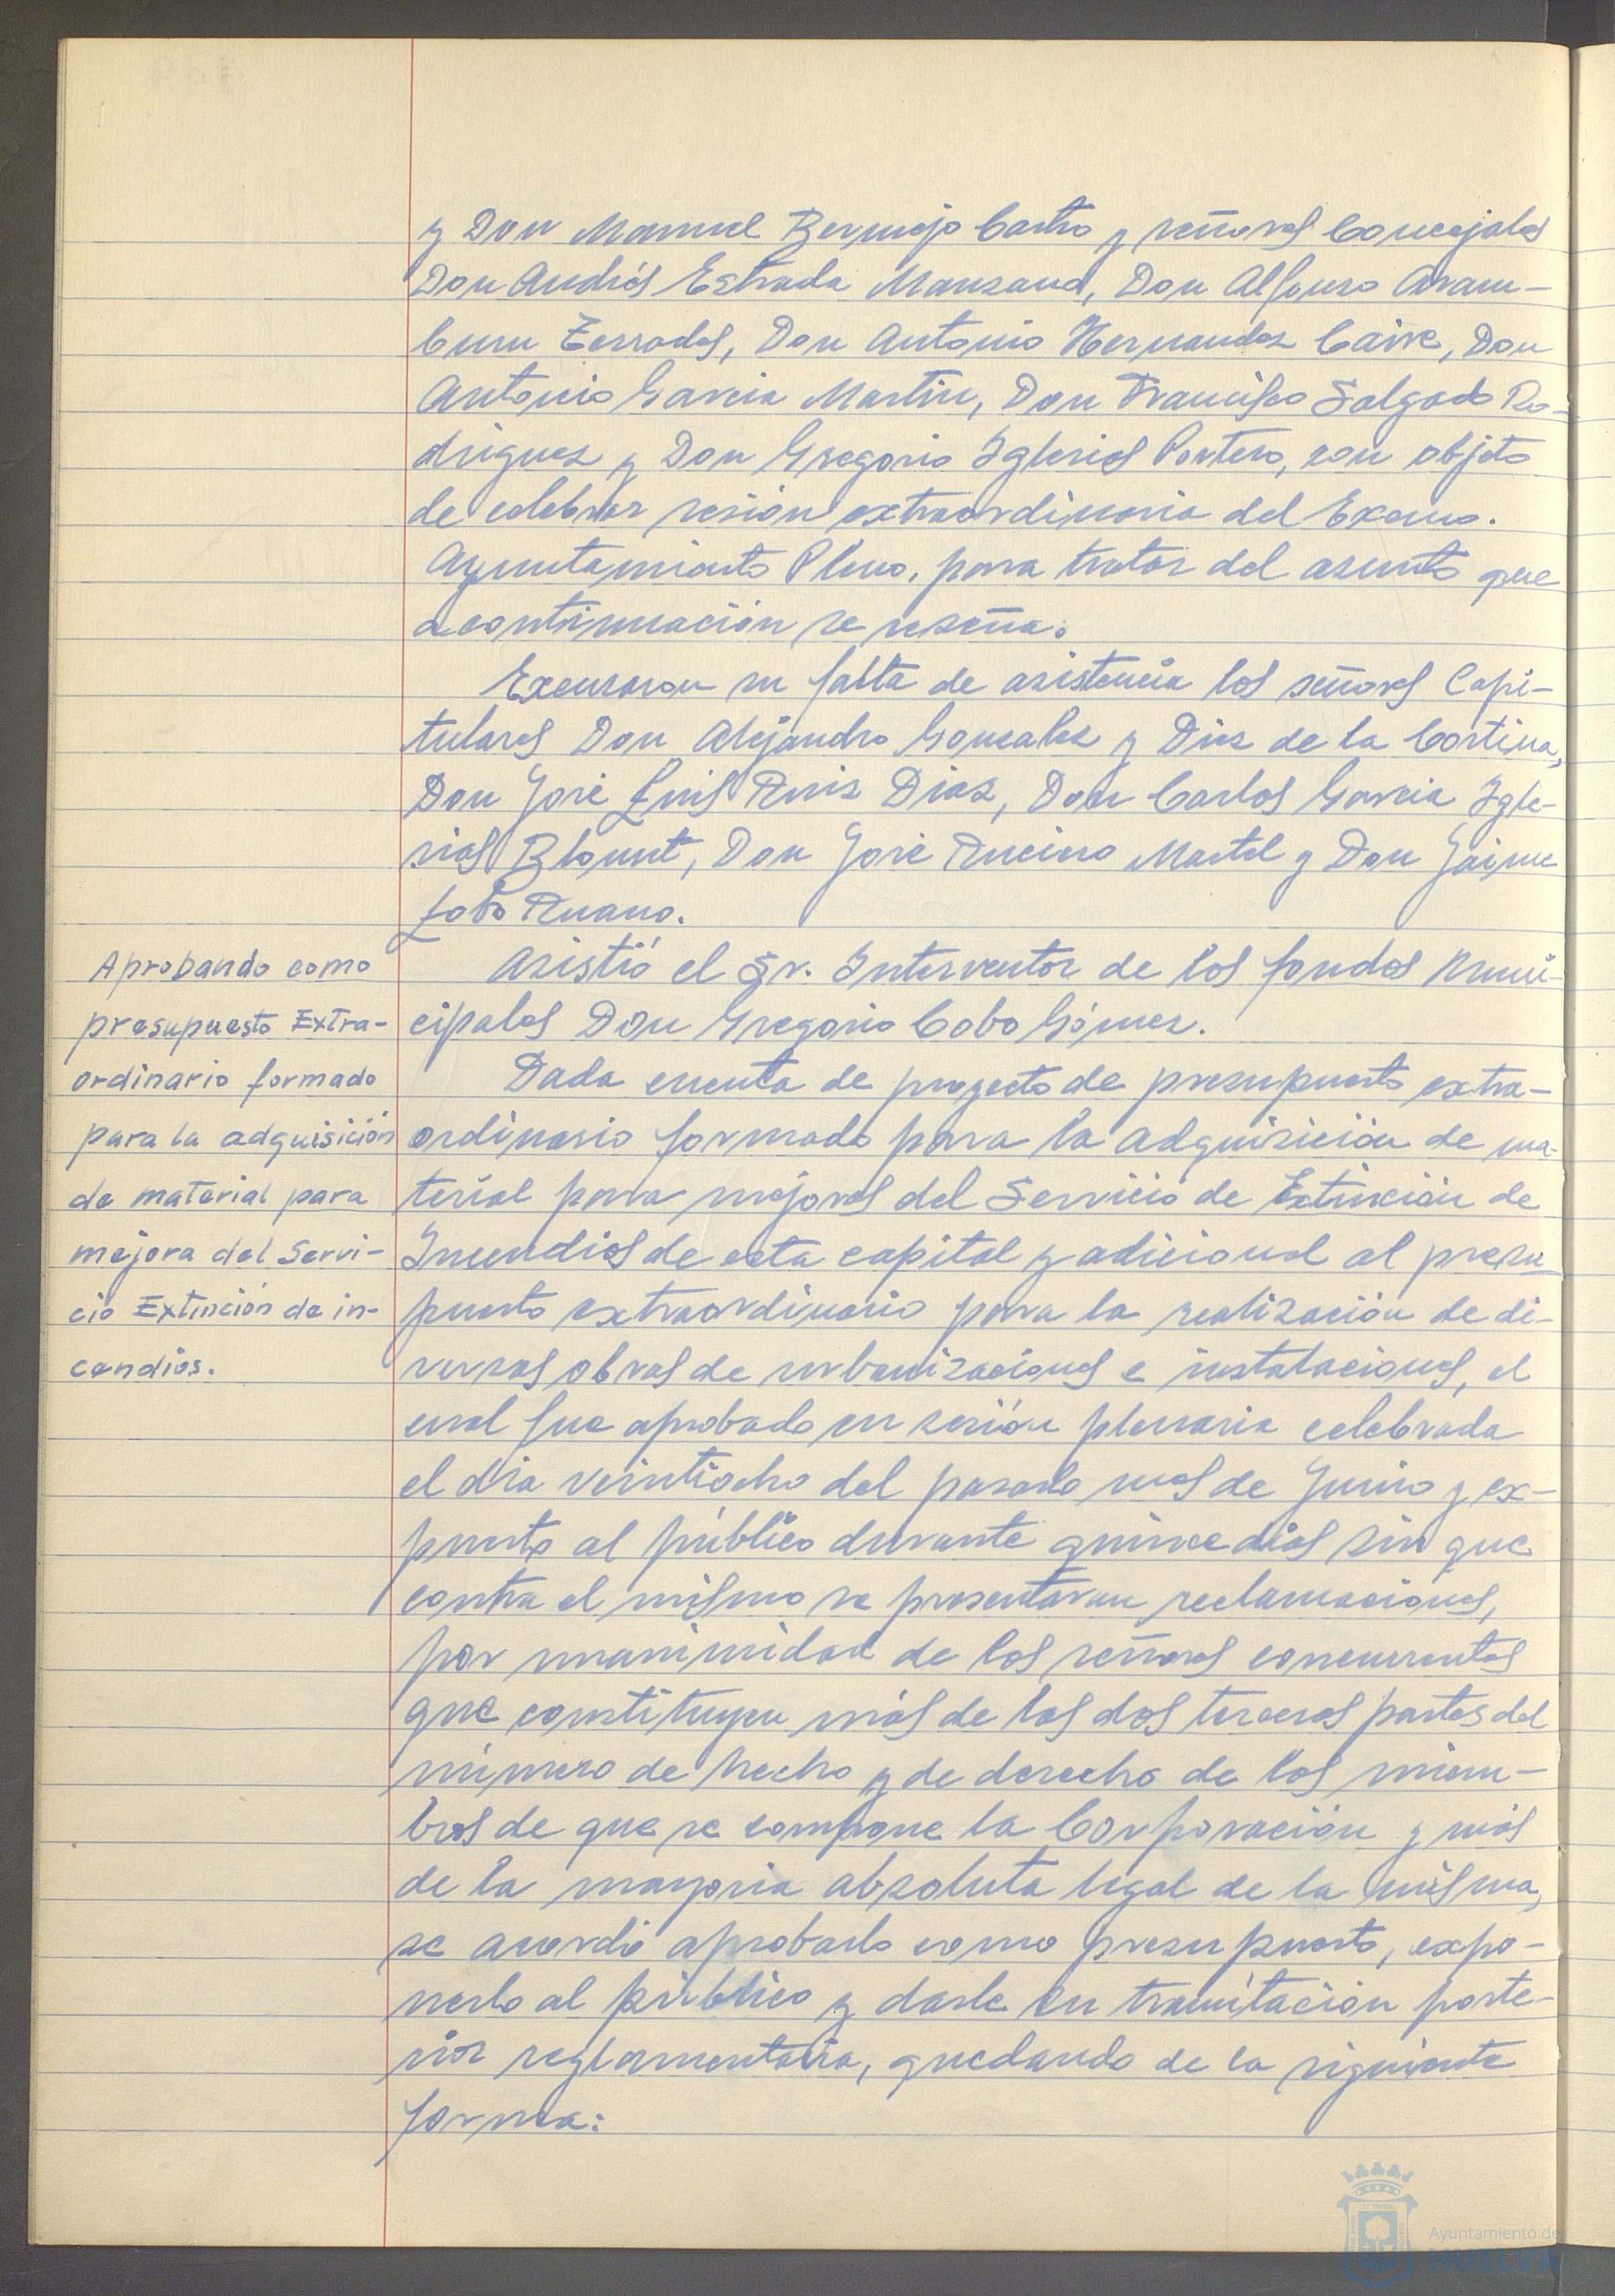 y Don Manuel Bermejo Castro y señores Concejales
Don Andrés Estrada Manzano, Don Alfonso Aram-
buru Terrades, Don Antonio Hernandez Caire, Don
Antonio Garcia Martin, Don Francisco Salgado Ro-
driguez y Don Gregorio Iglesias Portero, con objeto
de celebrar sesión extraordinaria del Excmo.
Ayuntamiento Pleno, para tratar del asunto que
a continuación se reseña:
Excusaron su falta de asistencia los señores Capi-
tulares Don Alejandro Gonzalez y Diez de la Cortina,
Don José Luis Ruiz Diaz, Don Carlos Garcia Igle-
sias Blount, Don José Rucino Martel y Don Jaime
Lobo Ruano.
Asistió el Sr. Interventor de los fondos Muni-
cipales Don Gregorio Cobo Gómez.
Aprobando como
presupuesto Extra-
ordinario formado
para la adquisición
de material para
mejora del Servi-
cio Extinción de in-
cendios.
Dada cuenta de proyecto de presupuesto extra-
ordinario formado para la adquisición de ma-
terial para mejoras del Servicio de Extinción de
Incendios de esta capital y adicional al presu-
puesto extraordinario para la realización de di-
versas obras de urbanizaciones e instalaciones, el
cual fue aprobado en sesión plenaria celebrada
el dia veintiocho del pasado mes de Junio y ex-
puesto al público durante quince dias sin que
contra el mismo se presentaran reclamaciones,
por unanimidad de los señores concurrentes
que constituyen más de las dos terceras partes del
número de hecho y de derecho de los miem-
bros de que se compone la Corporación y más
de la mayoria absoluta legal de la misma,
se acordó aprobarlo como presupuesto, expo-
nerlo al público y darle su tramitación poste-
rior reglamentaria, quedando de la siguiente
forma:
Ayuntamiento de
HUELVA